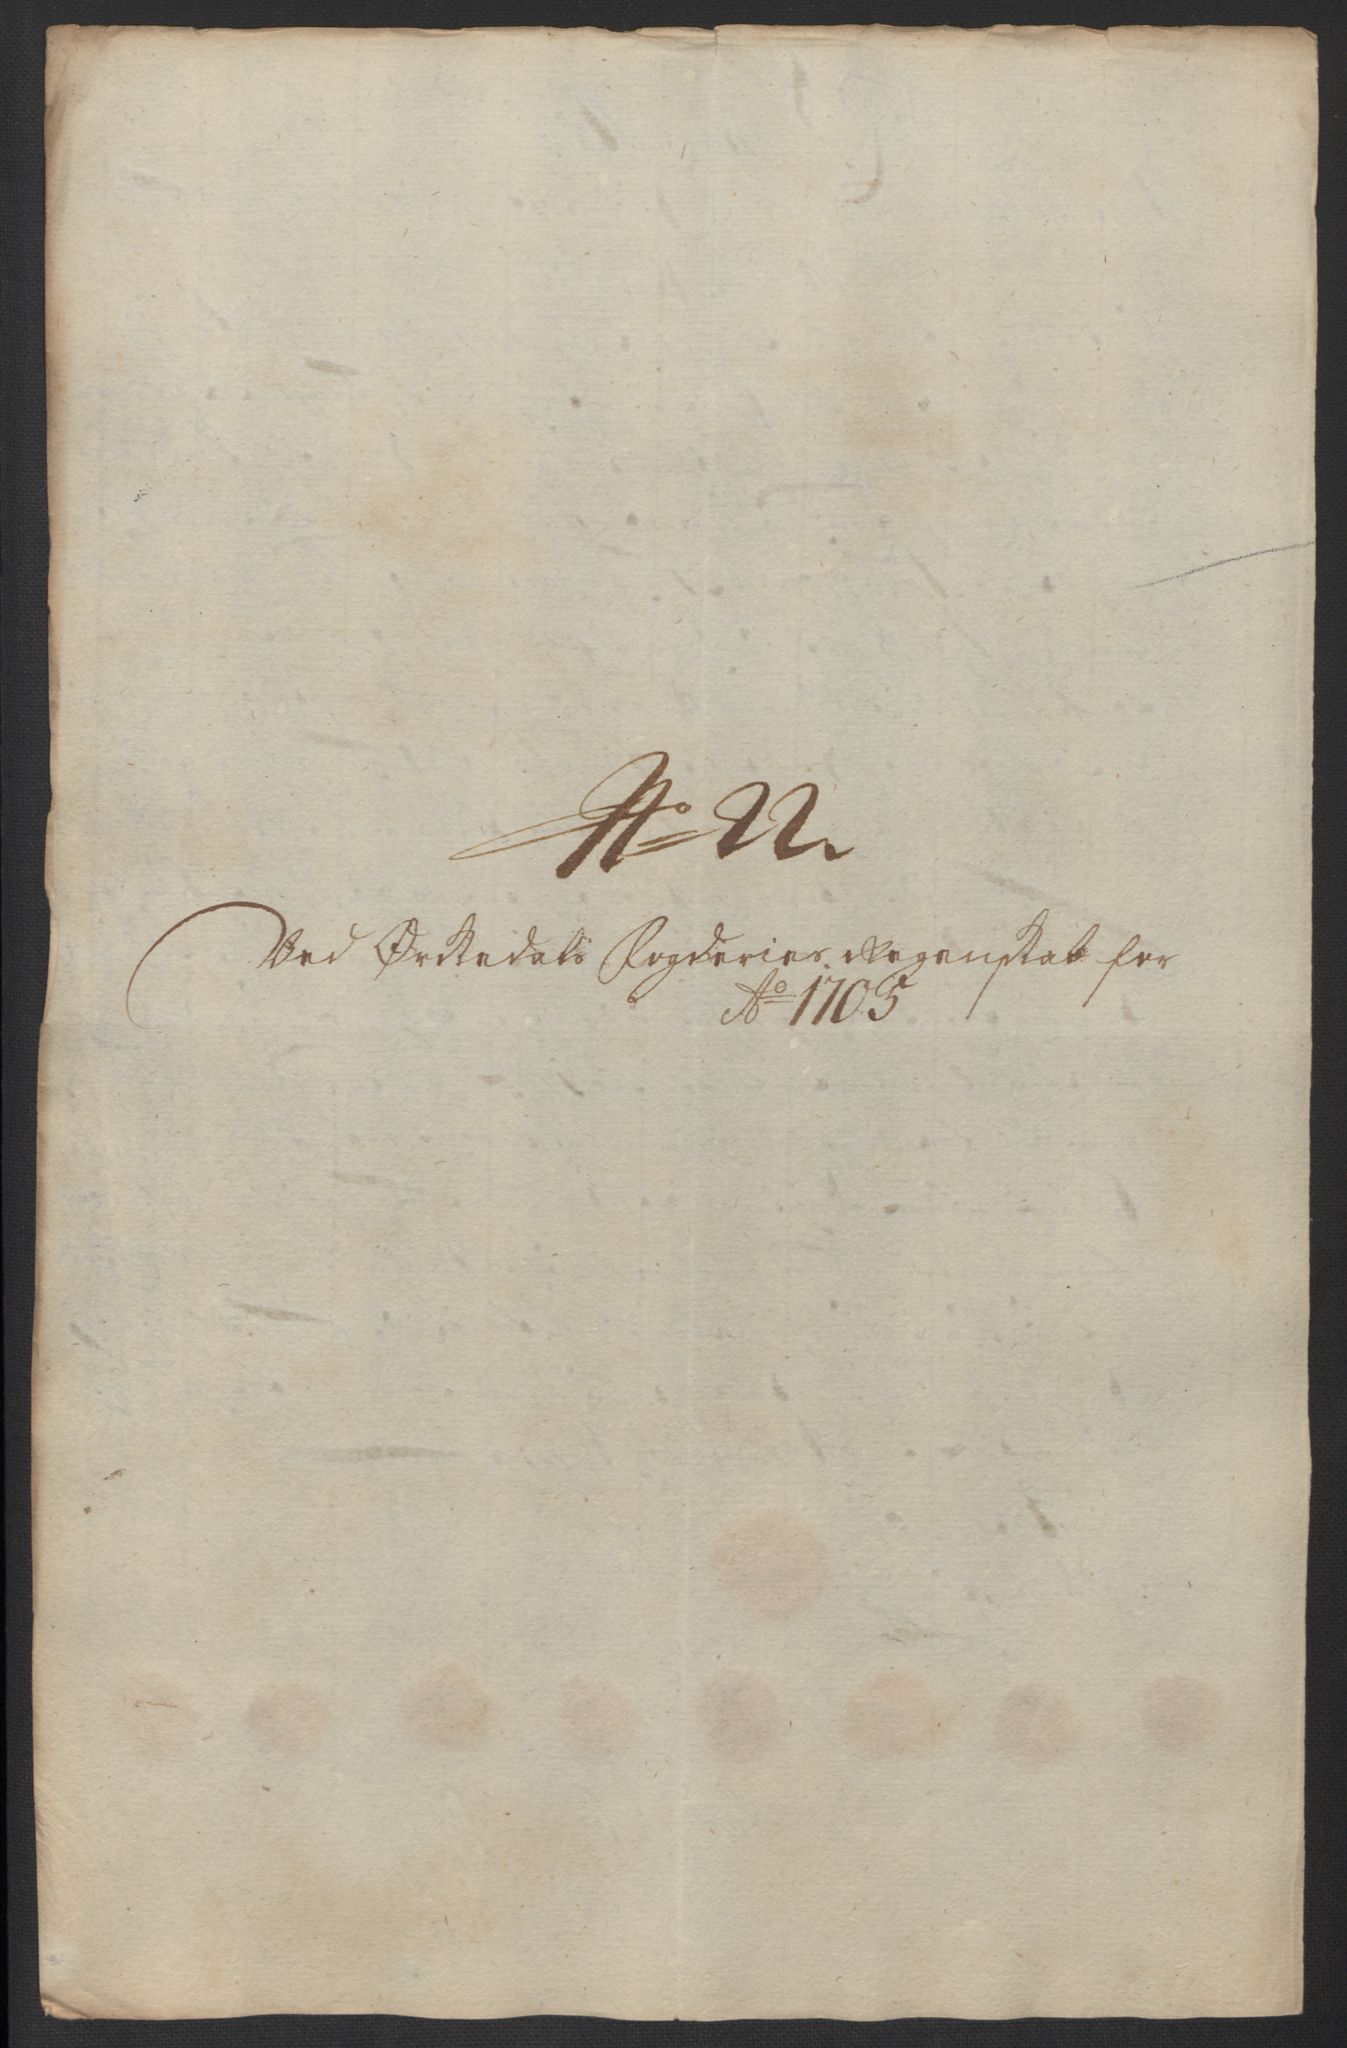 No 22.
Ved Ørkedals Fogderies Regenskab for
Ao 1705